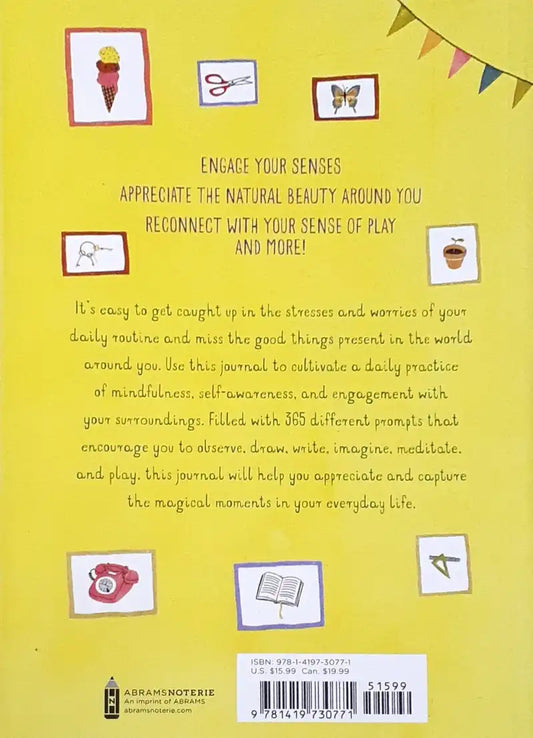 ENGAGE YOUR SENSES
APPRECIATE THE NATURAL BEAUTY AROUND YOU
RECONNECT WITH YOUR SENSE OF PLAY
AND MORE!
It's easy to get caught up in the stresses and worries of your
daily routine and miss the good things present in the world
around you. Use this journal to cultivate a daily practice
of mindfulness, self-awareness, and engagement with
your surroundings. Filled with 365 different prompts that
encourage you to observe, draw, write, imagine, meditate,
and play, this journal will help you appreciate and capture
the magical moments in your everyday life.
ISBN: 978-1-4197-3077-1
U.S. $15.99 Can. $19.99
51599
9 781419 730771
N
ABRAMSNOTERIE
An imprint of ABRAMS
abramsnoterie.com